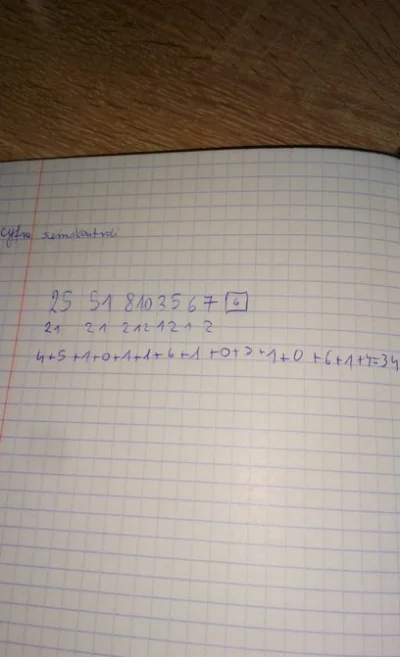 Cyfra samokontroli
25 51 8103567 6
21 21 2121212
4+5+1+0+1+1+6+1+0+3+1+0+6+1+4=34